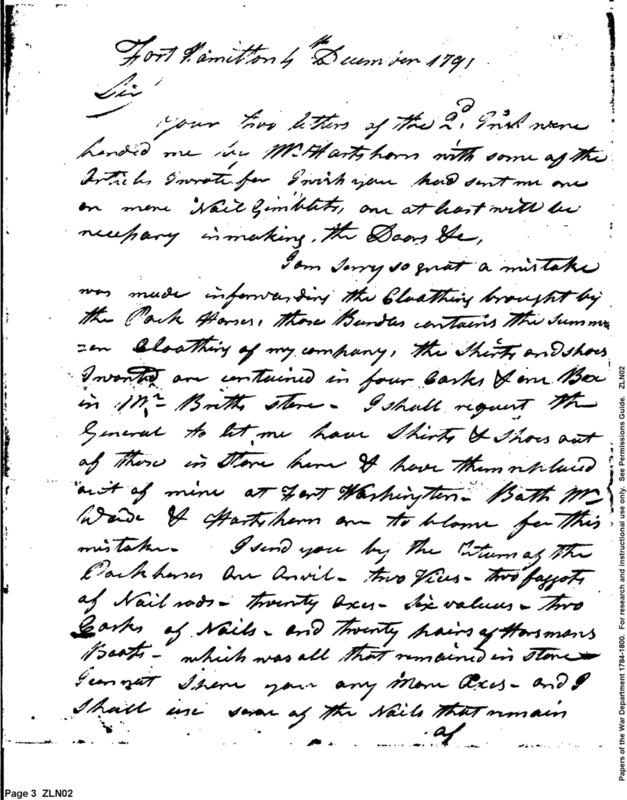 Fort Hamilton 4th December 1791
Sir
Your two letters of the 2d. Inst were
handed me by Mr. Hartshorn with some of the
Articles I wrote for I wish you had sent me one
or more Nail Gimblets, one at least will be
necessary in making, the Doors &c,
I am sorry so great a mistake
was made in forwarding the Cloathing brought by
the Pack Horses, those Bundles contains the Summ
=er Cloathing of my company, the Shirts and shoes
I wanted are contained in four Casks & one Box
in Mr. Britts store - I shall request the
General to let me have Shirts & Shoes out
of those in Store here & have them replaced
out of mine at Fort Washington - Both Mr
Wade & Hartshorn are to blame for this
mistake - I send you by the return of the
Packhorses One Anvil - two Vices - two faggots
of Nail rods - twenty Axes - Six - two
Casks of Nails - and twenty pairs of Horsmans
Boots - which was all that remained in Store -
I cannot spare you any More Axes - and I
shall use some of the Nails that remain
of
Page 3 ZLN02
Papers of the War Department 1784-1800. For research and instructional use only. See Permissions Guide. ZLN02